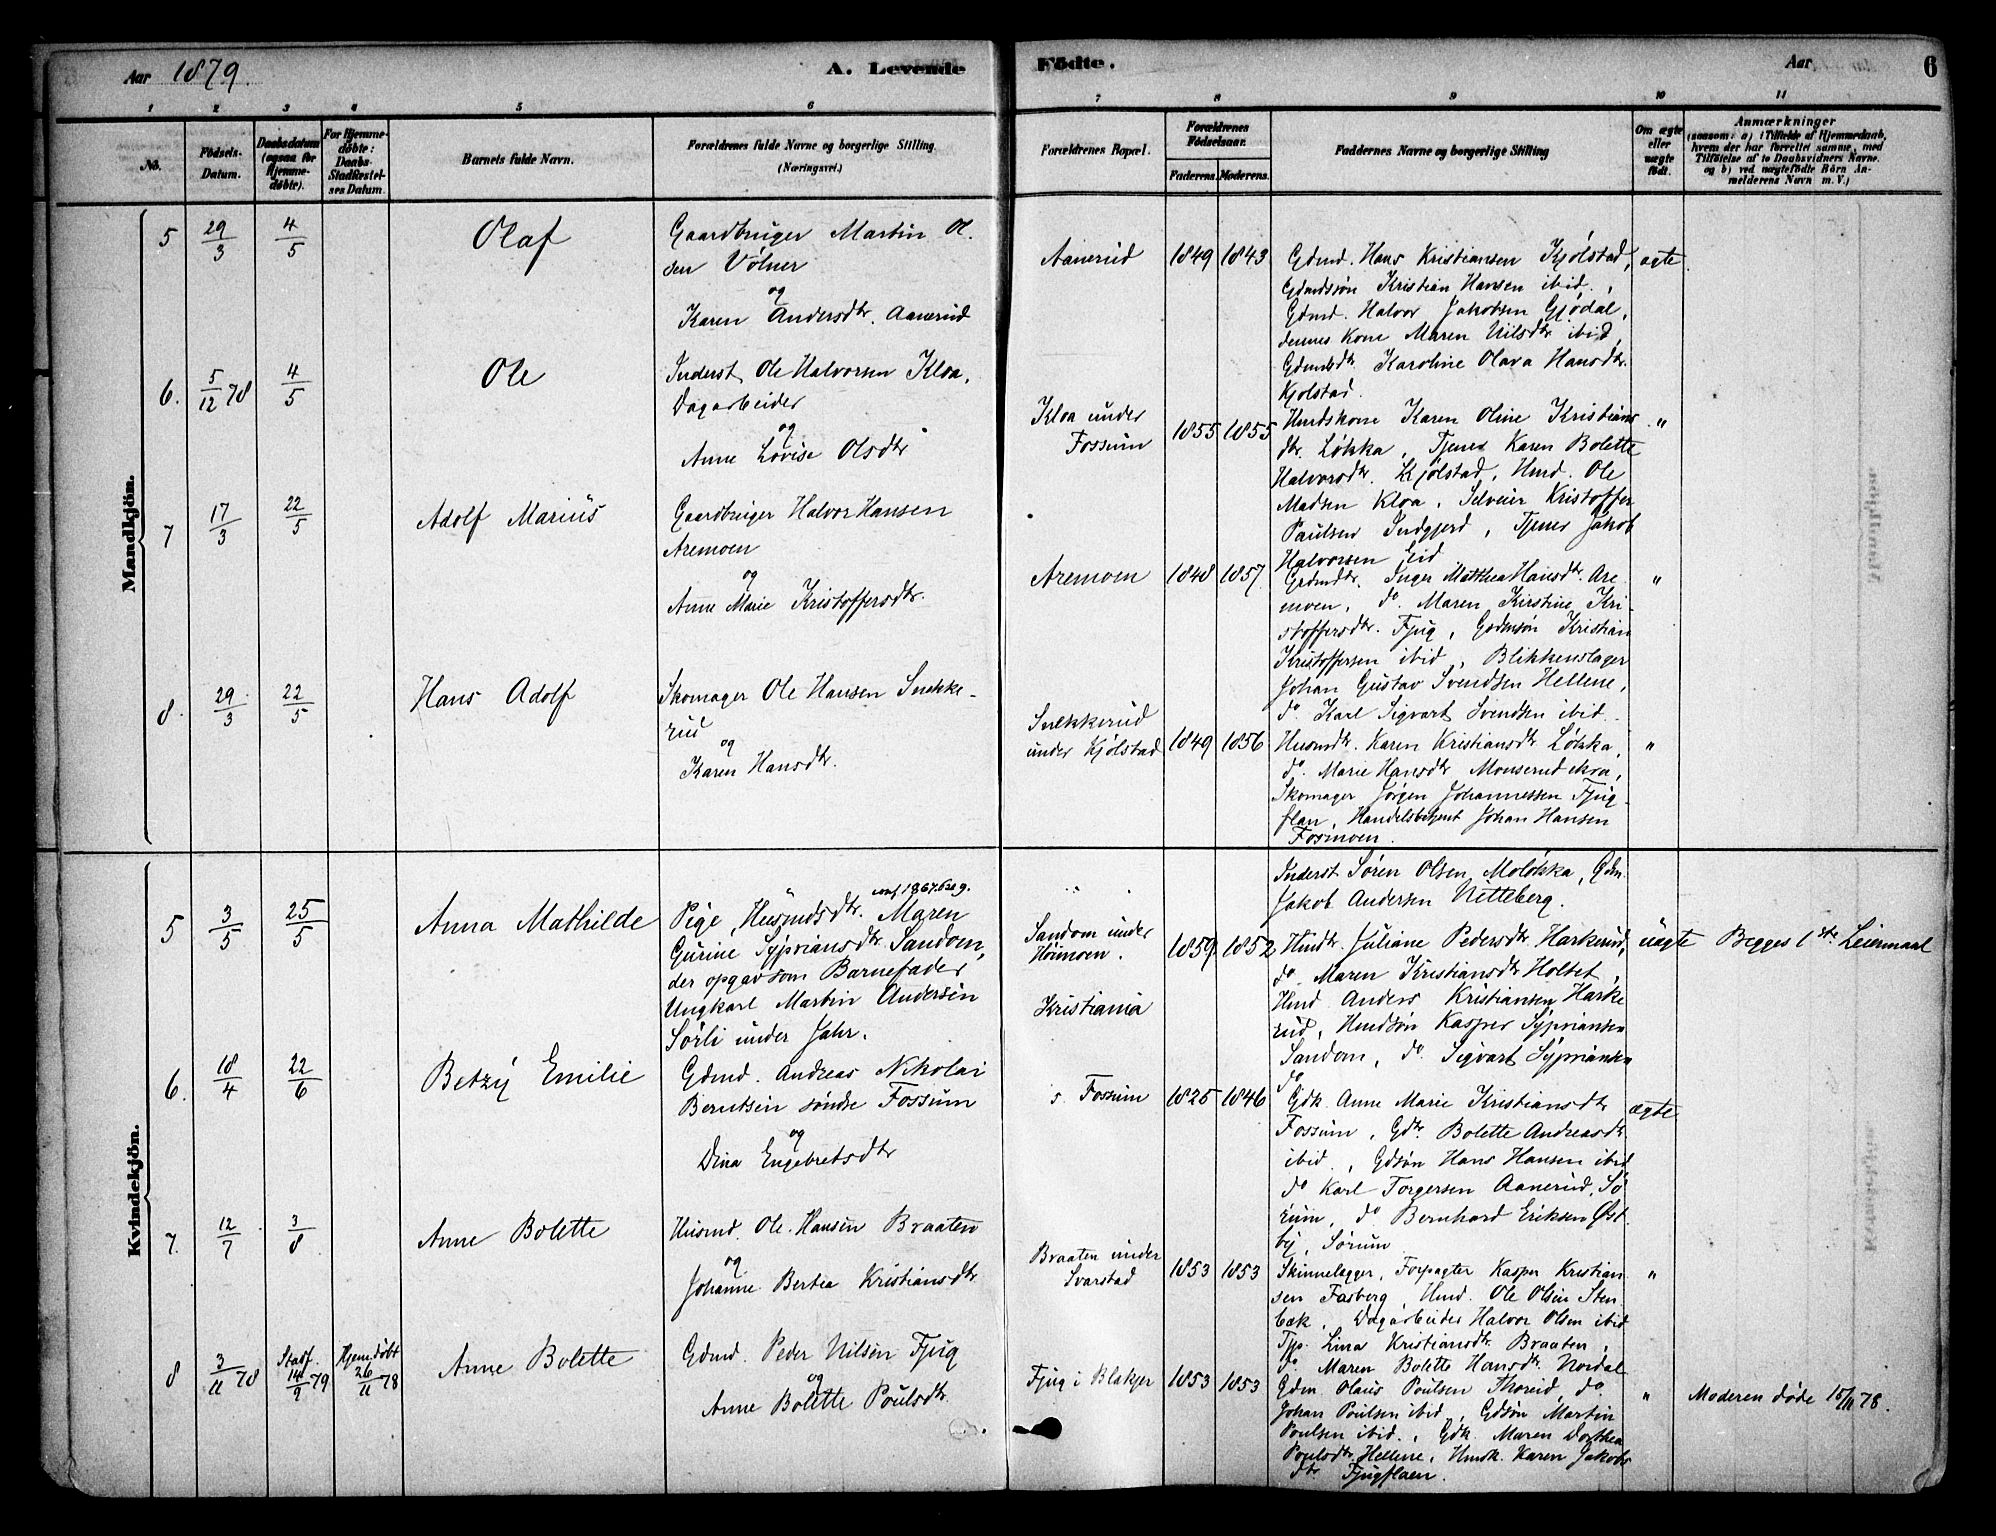 Aar 1879.
A. Levende
Födte.
Aar
6
1 2 3 4 5 6 7 8 9 10 11
No.
Födsels-
Datum.
Daabsdatum
(ogsaa for
Hjemme-
døbte).
For Hjemme-
døbte:
Daabs-
Stadfæstel-
ses Datum.
Barnets fulde Navn.
Forældrenes fulde Navne og borgerlige Stilling.
(Næringsvei.)
Forældrenes Bopæl.
Forældrenes
Födselsaar.
Faderens. Moderens.
Faddernes Navne og borgerlige Stilling
Om ægte
eller
uægte
født.
Anmærkninger
(saasom: a) i Tilfælde af Hjemmedaab,
hvem der har forrettet samme, med
Tilføielse af to Daabsvidners Navne.
og b) ved uægtefödte Börn An-
melderens Navn m. V.)
Mandkjön.
5 29/3 4/5 Olaf
Gaardbruger Martin Ol-
sen Völner
og
Karen Andersdtr. Aanerud
Aanerud 1849 1843
Gdmd. Hans Kristiansen Kjölstad,
Gdmdssön Kristian Hansen ibid.,
Gdmd. Halvor Jakobsen Gjödal,
dennes Kone Maren Nilsdtr ibid,
Gdmdsdtr Karoline Olava Hansdtr.
Kjölstad.
ægte
6. 5/12 78 4/5 Ole
Inderst Ole Halvorsen Kloa,
Dagarbeider
og
Anne Lovise Olsdtr
Kloa under
Fossum
1855 1855
Hmdskone Karen Oline Kristians
dtr. Løkka, Tjenes Karen Bolette
Halvorsdtr. Kjölstad, Hmd. Ole
Madsen Kloa, Selveier Kristoffer
Paulsen Indgjerd, Tjenes Jakob
Halvorsen Eid
"
7 17/3 22/5 Adolf Marius
Gaardbruger Halvor Hansen
Aremoen
og
Anne Marie Kristoffersdtr.
Aremoen 1848 1857
Grdmdtr. Inger Matthea Hansdtr. Are
moen, do. Maren Kirstine Kri-
stoffersdtr. Fjug, Gdmsön Kristian
Kristoffersen ibid, Blikkenslager
Johan Gustav Svendsen Hellene,
do. Karl Sigvart Svendsen ibid.
"
8. 29/3 22/5 Hans Adolf
Skomager Ole Hansen Snekke-
rud
og
Karen Hansdtr.
Snekkerud
under Kjölstad
1849 1856
Husmdtr. Karen Kristiansdtr Løkka,
do. Marie Hansdtr Monserudekra,
Skomager Jörgen Johannessen Fjug-
flan, Handelsbetjent Johan Hansen
Fosmoen.
"
Kvindekjön.
5 3/5 25/5 Anna Mathilde
conf 1867.6
Pige, Husmdsdtr. Maren
Gurine Syprianssdtr. Sandom,
der opgav som Barnefader
Ungkarl Martin Andersen
Sörli under Jahr.
Sandom under
Höimoen.
Kristiania
1859 1852
Inderst Sören Olsen Molökka, Gdm.
Jakob Andersen Netteberg.
Hmdtr. Juliane Pedersdtr Harkerud,
do. Maren Kristiansdtr Holtet,
Hmd Anders Kristiansen Harke
rud, Hmdsön Kasper Syprians­en
Sandom, do. Sigvart Syprians­en
do
uægte
Begges 1ste Leiermaal
6. 18/4 22/6 Betzy Emilie
Gdmd. Andreas Nikolai
Berntsen söndre Fossum
og
Dina Engebretsdtr
s. Fossum 1825 1846
Gdk. Anne Marie Kristiansdtr
Fossum, Gdtr. Bolette Andreasdtr
ibid., Gdsön Hans Hansen ibid
do Karl Torgersen Aanerud, Sö
rum, do Bernhard Eriksen Öst
by, Sörum
ægte
7. 12/7 3/8 Anne Bolette
Husmd. Ole Hansen Braaten
og
Johanne Bertea Kristiansdtr
Braaten under
Svarstad
1853 1853
Skinnelægger, Forpagter Kasper Kristian
sen Farberg, Hmd. Ole Olsen Sten
bæk, Dagarbeider Halvor Olsen ibid
Tjp. Lina Kristiansdtr. Braaten,
do. Maren Bolette Hansdtr. Nordal
"
8 3/11 78 Stadf. 14/9 79 Hjemdöbt 26/11 78 Anne Bolette
Gdmd. Peder Nilsen Fjug
og
Anne Bolette Poulsdtr
Fjug i Blakjer 1853 1853
Gdm Olaus Poulsen Thoreid, do.
Johan Poulsen ibid, Gdsön Martin
Poulsen ibid., Gdk. Maren Dorthea
Poulsdtr. Hellene, Hmdk. Karen Jakobs
dtr Fjugflaen.
"
Moderen döde 15/11 78.